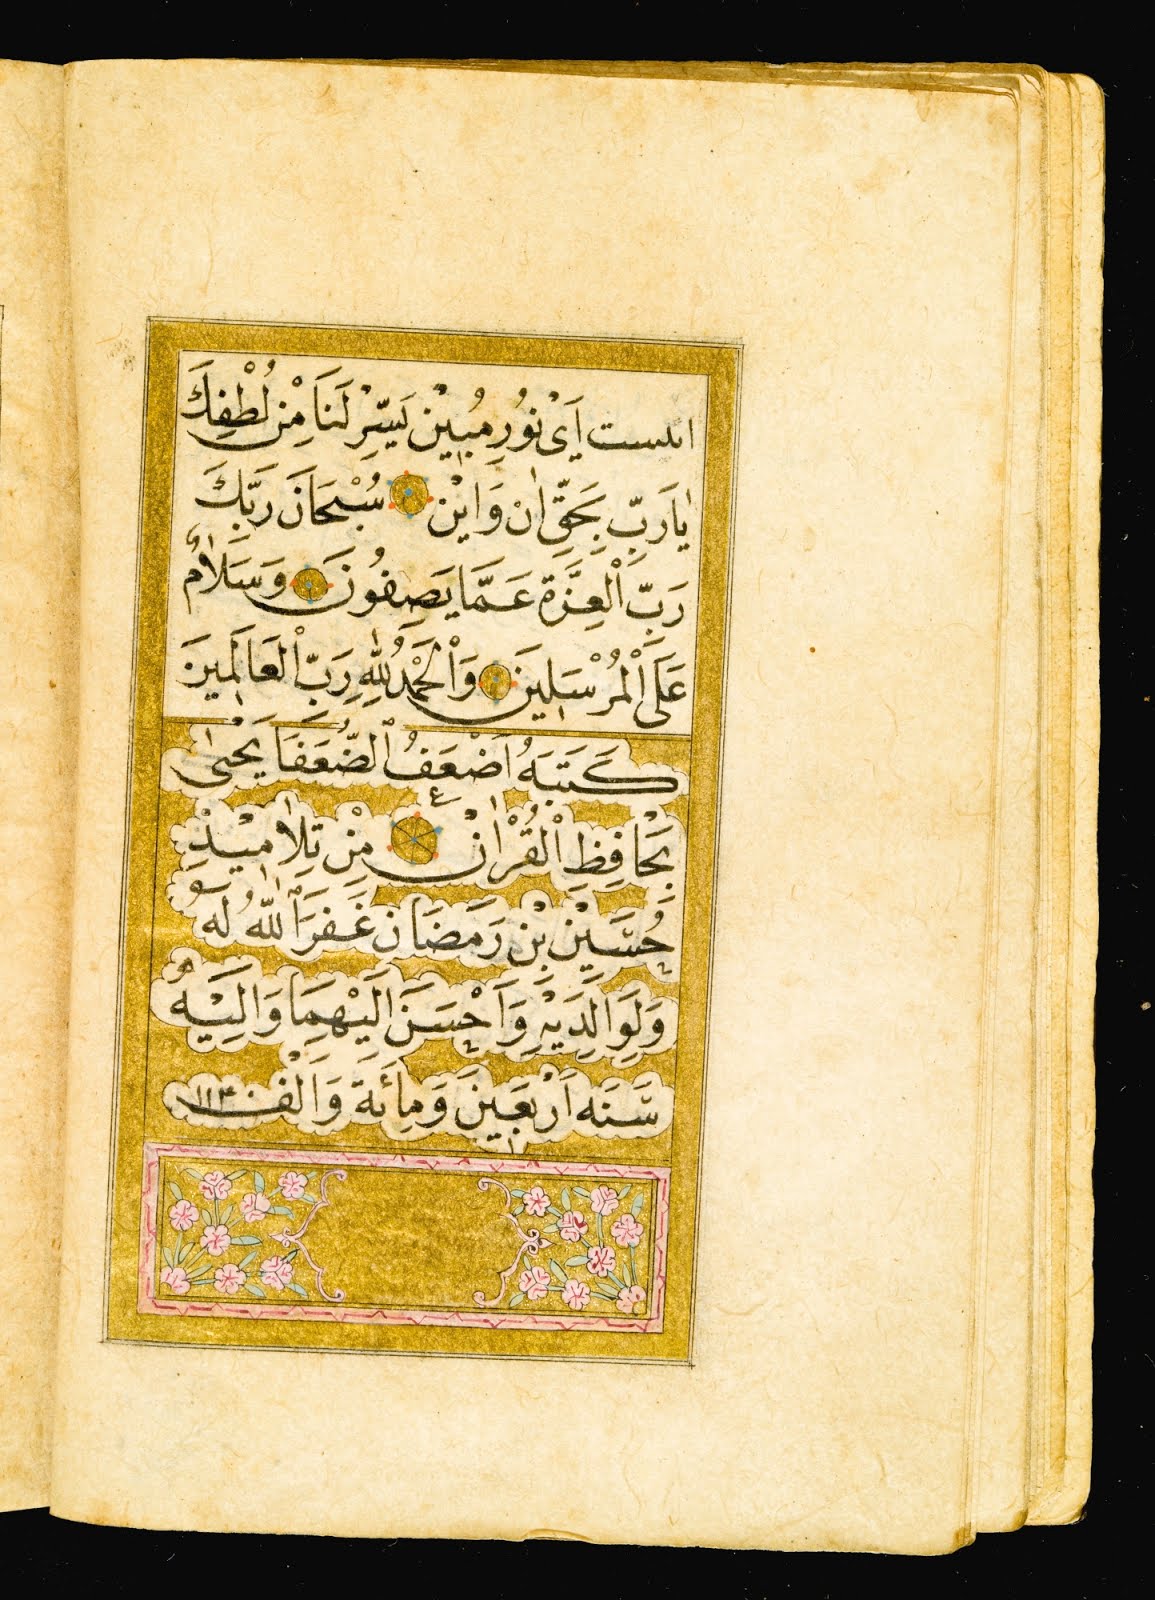 است اَىْ نُورِ مُبٖينْ يَسِّرْ لَنَا مِنْ لُطْفِكَ
يٰارَبِّ بِحَقِّ اٰنْ وَاٖينْ سُبْحَانَ رَبِّكَ
رَبِّ الْعِزَّةِ عَمَّا يَصِفُونَ وَسَلَامٌ
عَلَى الْمُرْسَلٖينَ وَالْحَمْدُ لِلّٰهِ رَبِّ الْعَالَمٖينَ
كَتَبَهُ اَضْعَفُ الضُّعَفَا يَحْيٰى
بِحَافِظِ الْقُرْاٰنْ مِنْ تِلَامٖيذِ
حُسَيْنْ بِنْ رَمَضَان غَفَرَ اللّٰهُ لَهُ
وَلِوَالِدَيْهِ وَاَحْسَنَ اِلَيْهِمَا وَاِلَيْهِ
سَنَه اَرْبَعٖينَ وَمِائَة وَاَلْف ١١٤٠